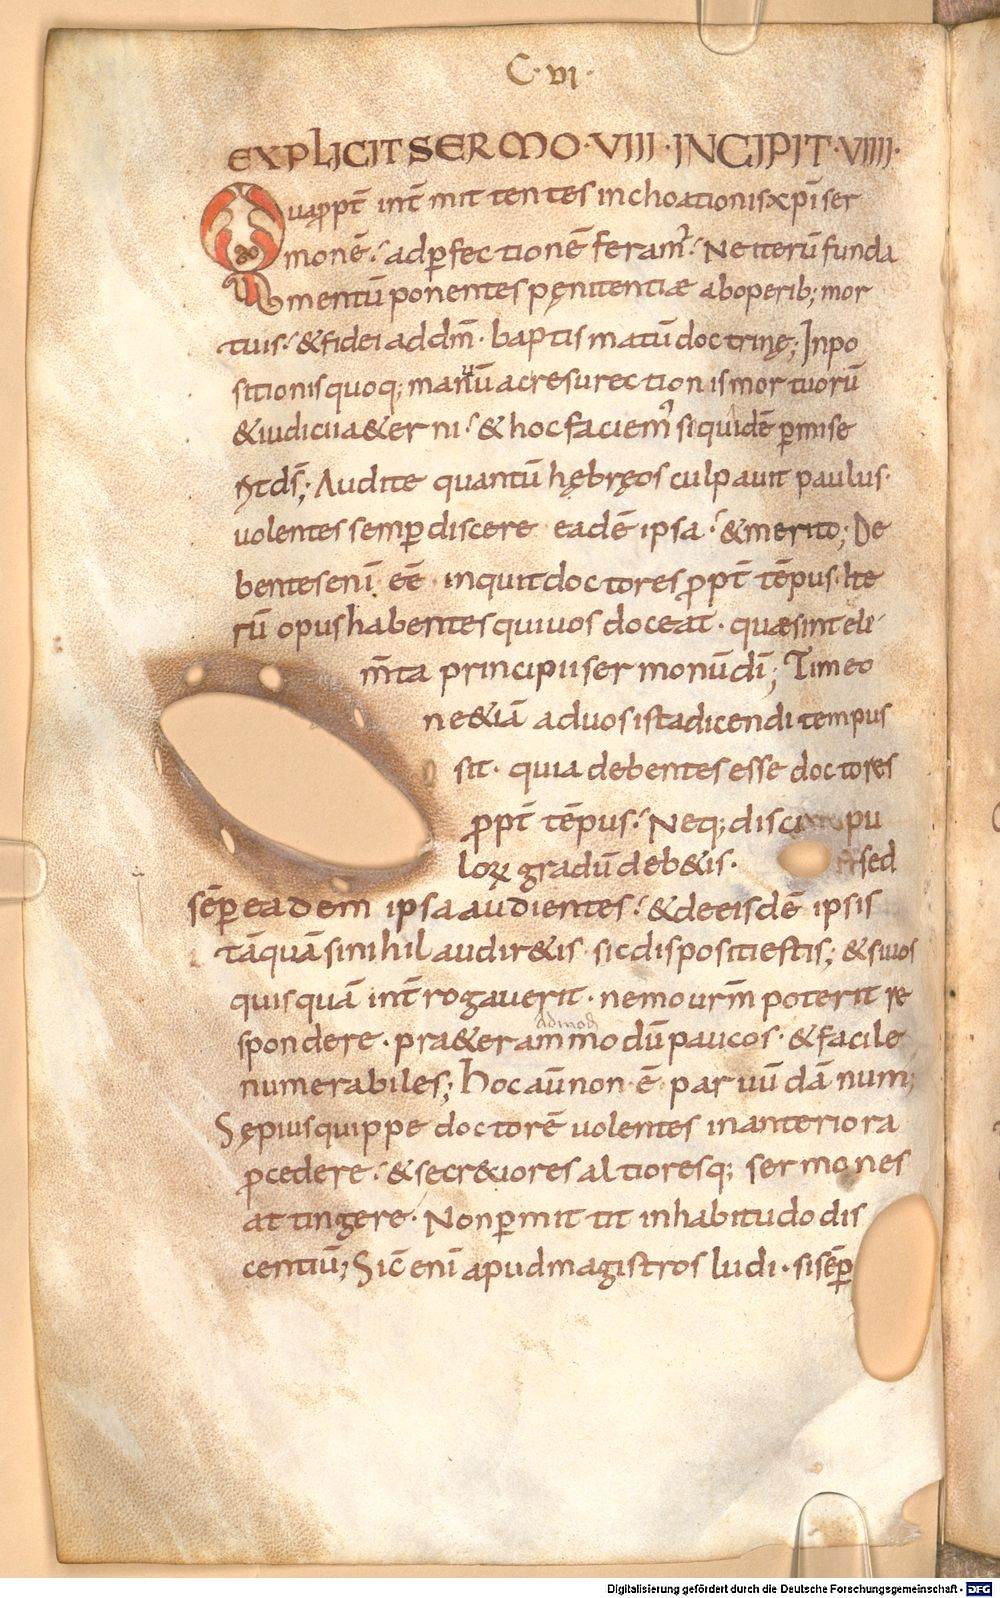 C·VI·
EXPLICIT SERMO·VIII·INCIPIT·VIIII·
Quaꝓpt̄ int̄mittentes inchoationis xp̄i ser
monē· ad ꝑfectionē feram᷒· Ne iterū funda
mentū ponentes pęnitentiæ ab operib; mor
tuis· & fidei ad dm̄· baptismatū doctrinę; Inpo
sitionis quoq; manuū ac resurectionis mortuorū
& iudicii a&erni· & hoc faciem᷒ siquidē ꝑmise
rit ds̄; Audite quantū hębręos culpauit paulus·
uolentes semꝑ discere eadē ipsa· & merito; De
bentes enī eē· inquit doctores ꝓpt̄ tēpus· Ite
rū opus habentes qui uos doceat· quæ sint ele
m̄ta principii sermonū dī; Timeo
ne &iā ad uos ista dicendi tempus
sit· quia debentes esse doctores
ꝓpt̄ tēpus· Neq; disci pu
loꝝ gradū deb&is· sed
sēꝑ eadem ipsa audientes· & de eisdē ipsis
tāquā si nihil audir&is· sic dispositi estis; & si uos
quisquā int̄rogauerit· nemo urm̄ poterit re
spondere· præ&er ammodū paucos· & facile
admod
numerabiles; Hoc aū non ē paruū dānum;
Sępius quippe doctorē uolentes in anteriora
ꝓcedere· & secr&iores altioresq; sermones
attingere· Non ꝑmittit inhabitudo dis
centiū; Sic̄ enī apud magistros ludi· si sēꝑ
Digitalisierung gefördert durch die Deutsche Forschungsgemeinschaft - DFG